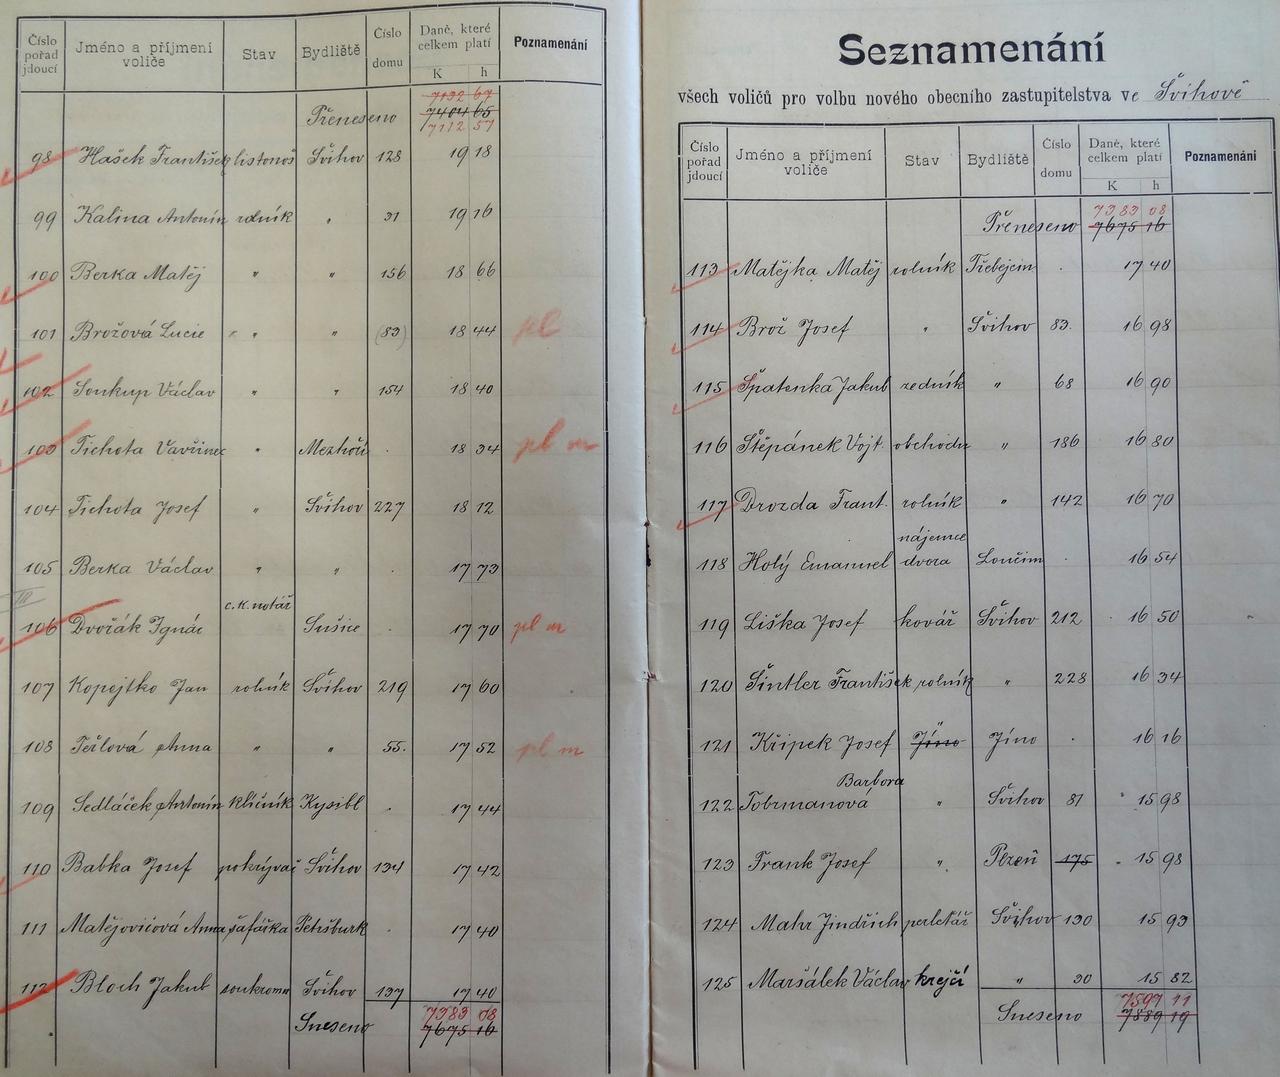 Číslo pořad jdoucí Jméno a příjmení voliče Stav Bydliště Číslo domu Daně, které celkem platí K h Poznamenání
7192 67
Přeneseno 7404 65
7112 57
98 Hašek František listonoš Švihov 128 19 18
99 Kalina Antonín rolník " 31 19 16
100 Berka Matěj " " 156 18 66
101 Brožová Lucie " " (83) 18 44 pl
102 Soukup Václav " " 154 18 40
103 Tichota Vavřinec " Mezhoří . 18 34 pl m
104 Tichota Josef " Švihov 227 18 12
105 Berka Václav " " . 17 73
III
c.k. notář
106 Dvořák Ignác Sušice 17 70 pl m
107 Kopejtko Jan rolník Švihov 219 17 60
108 Teřlová Anna " " 55. 17 52 pl m
109 Sedláček Antonín klíčník Kysibl . 17 44
110 Babka Josef pokrývač Švihov 134 17 42
111 Matějovicová Anna šafářka Petršburk . 17 40
112 Bloch Jakub soukromn Švihov 137 17 40
7383 08
Sneseno 7675 16
Seznamenání
všech voličů pro volbu nového obecního zastupitelstva ve Švihově
Číslo pořad jdoucí Jméno a příjmení voliče Stav Bydliště Číslo domu Daně, které celkem platí K h Poznamenání
7383 08
Přeneseno 7675 16
113 Matějka Matěj rolník Třebejcin . 17 40
114 Brož Josef " Švihov 83. 16 98
115 Špatenka Jakub zedník " 68 16 90
116 Štěpánek Vojt. obchodn " 186 16 80
117 Drozda Frant. rolník " 142 16 70
nájemce
118 Holý Emanuel dvora Loučim . 16 54
119 Liška Josef kovář Švihov 212 16 50
120 Šintler František rolník " 228 16 34
121 Křipek Josef Jíno Jíno . 16 16
Barbora
122 Tobrmanová " Švihov 81 15 98
123 Frank Josef " Plzeň 175 15 98
124 Mahr Jindřich perletář Švihov 130 15 93
125 Maršálek Václav krejčí " 30 15 82
7597 11
Sneseno 7889 19